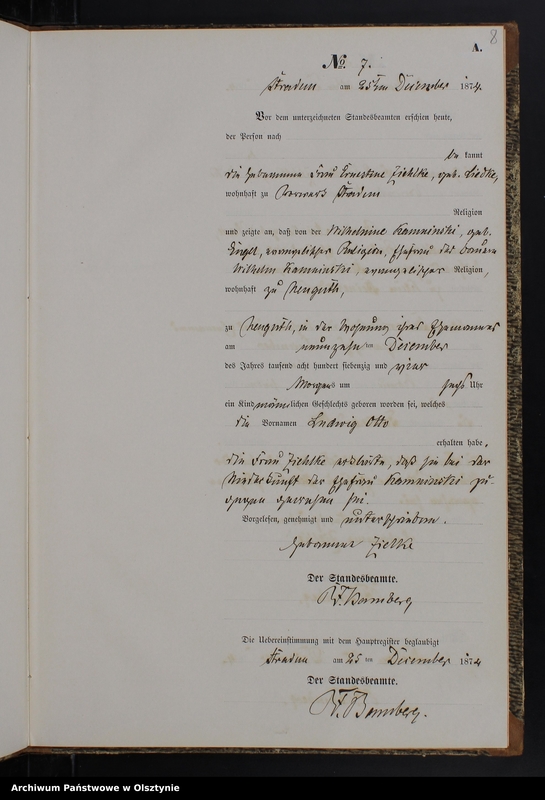 8
A.
No. 7.
Stradem am 25ten December 1874.
Vor dem unterzeichneten Standesbeamten erschien heute,
der Person nach
be kannt
die Hebamme Frau Ernestine Ziehlke, geb. Liedke,
wohnhaft zu Vorwerk Stradem
Religion
und zeigte an, daß von der Wilhelmine Kamninski, geb.
Engel, evangelischer Religion, Ehefrau des
Wilhelm Kamninski, evangelischer Religion,
wohnhaft zu Neuguth,
zu Neuguth, in der Wohnung ihres Ehemannes
am neunzehn ten December
des Jahres tausend acht hundert siebenzig und vier
Morgens um sechs Uhr
ein Kind männlichen Geschlechts geboren worden sei, welches
die Vornamen Ludwig Otto
erhalten habe,
die Frau Ziehlke erklärte, daß sie bei der
Niederkunft der Ehefrau Kamninski zu-
gegen gewesen sei.
Vorgelesen, genehmigt und unterschrieben.
Hebamme Zielke
Der Standesbeamte.
Bamberg
Die Uebereinstimmung mit dem Hauptregister beglaubigt
Stradem am 25 ten December 1874
Der Standesbeamte.
Bamberg.
Archiwum Państwowe w Olsztynie